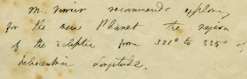 M. Verrier recommends exploring
for the new Planet the region
of the ecliptic from 321° to 335° of
heliocentric longitude.